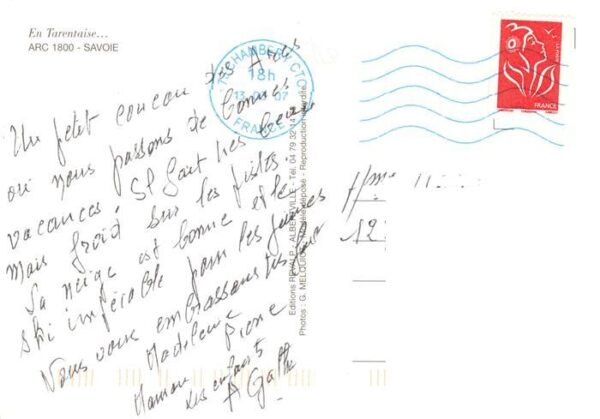 En Tarentaise...
ARC 1800 - SAVOIE
73 CHAMBERY CTC
18h
07
FRANCE
LA POSTE
FRANCE
Un petit coucou des Arcs
où nous passons de bonnes
vacances. Il fait très beau
mais froid sur les pistes.
La neige est bonne et le
ski impécable pour les jeunes
Nous vous embrassons très fort
Madeleine
Pierre
Maman
les enfants
Editions - ALBERTVILLE - Tél. 04 79 32
Photos : G. - Modèle déposé - Reproduction interdite
Mme
12